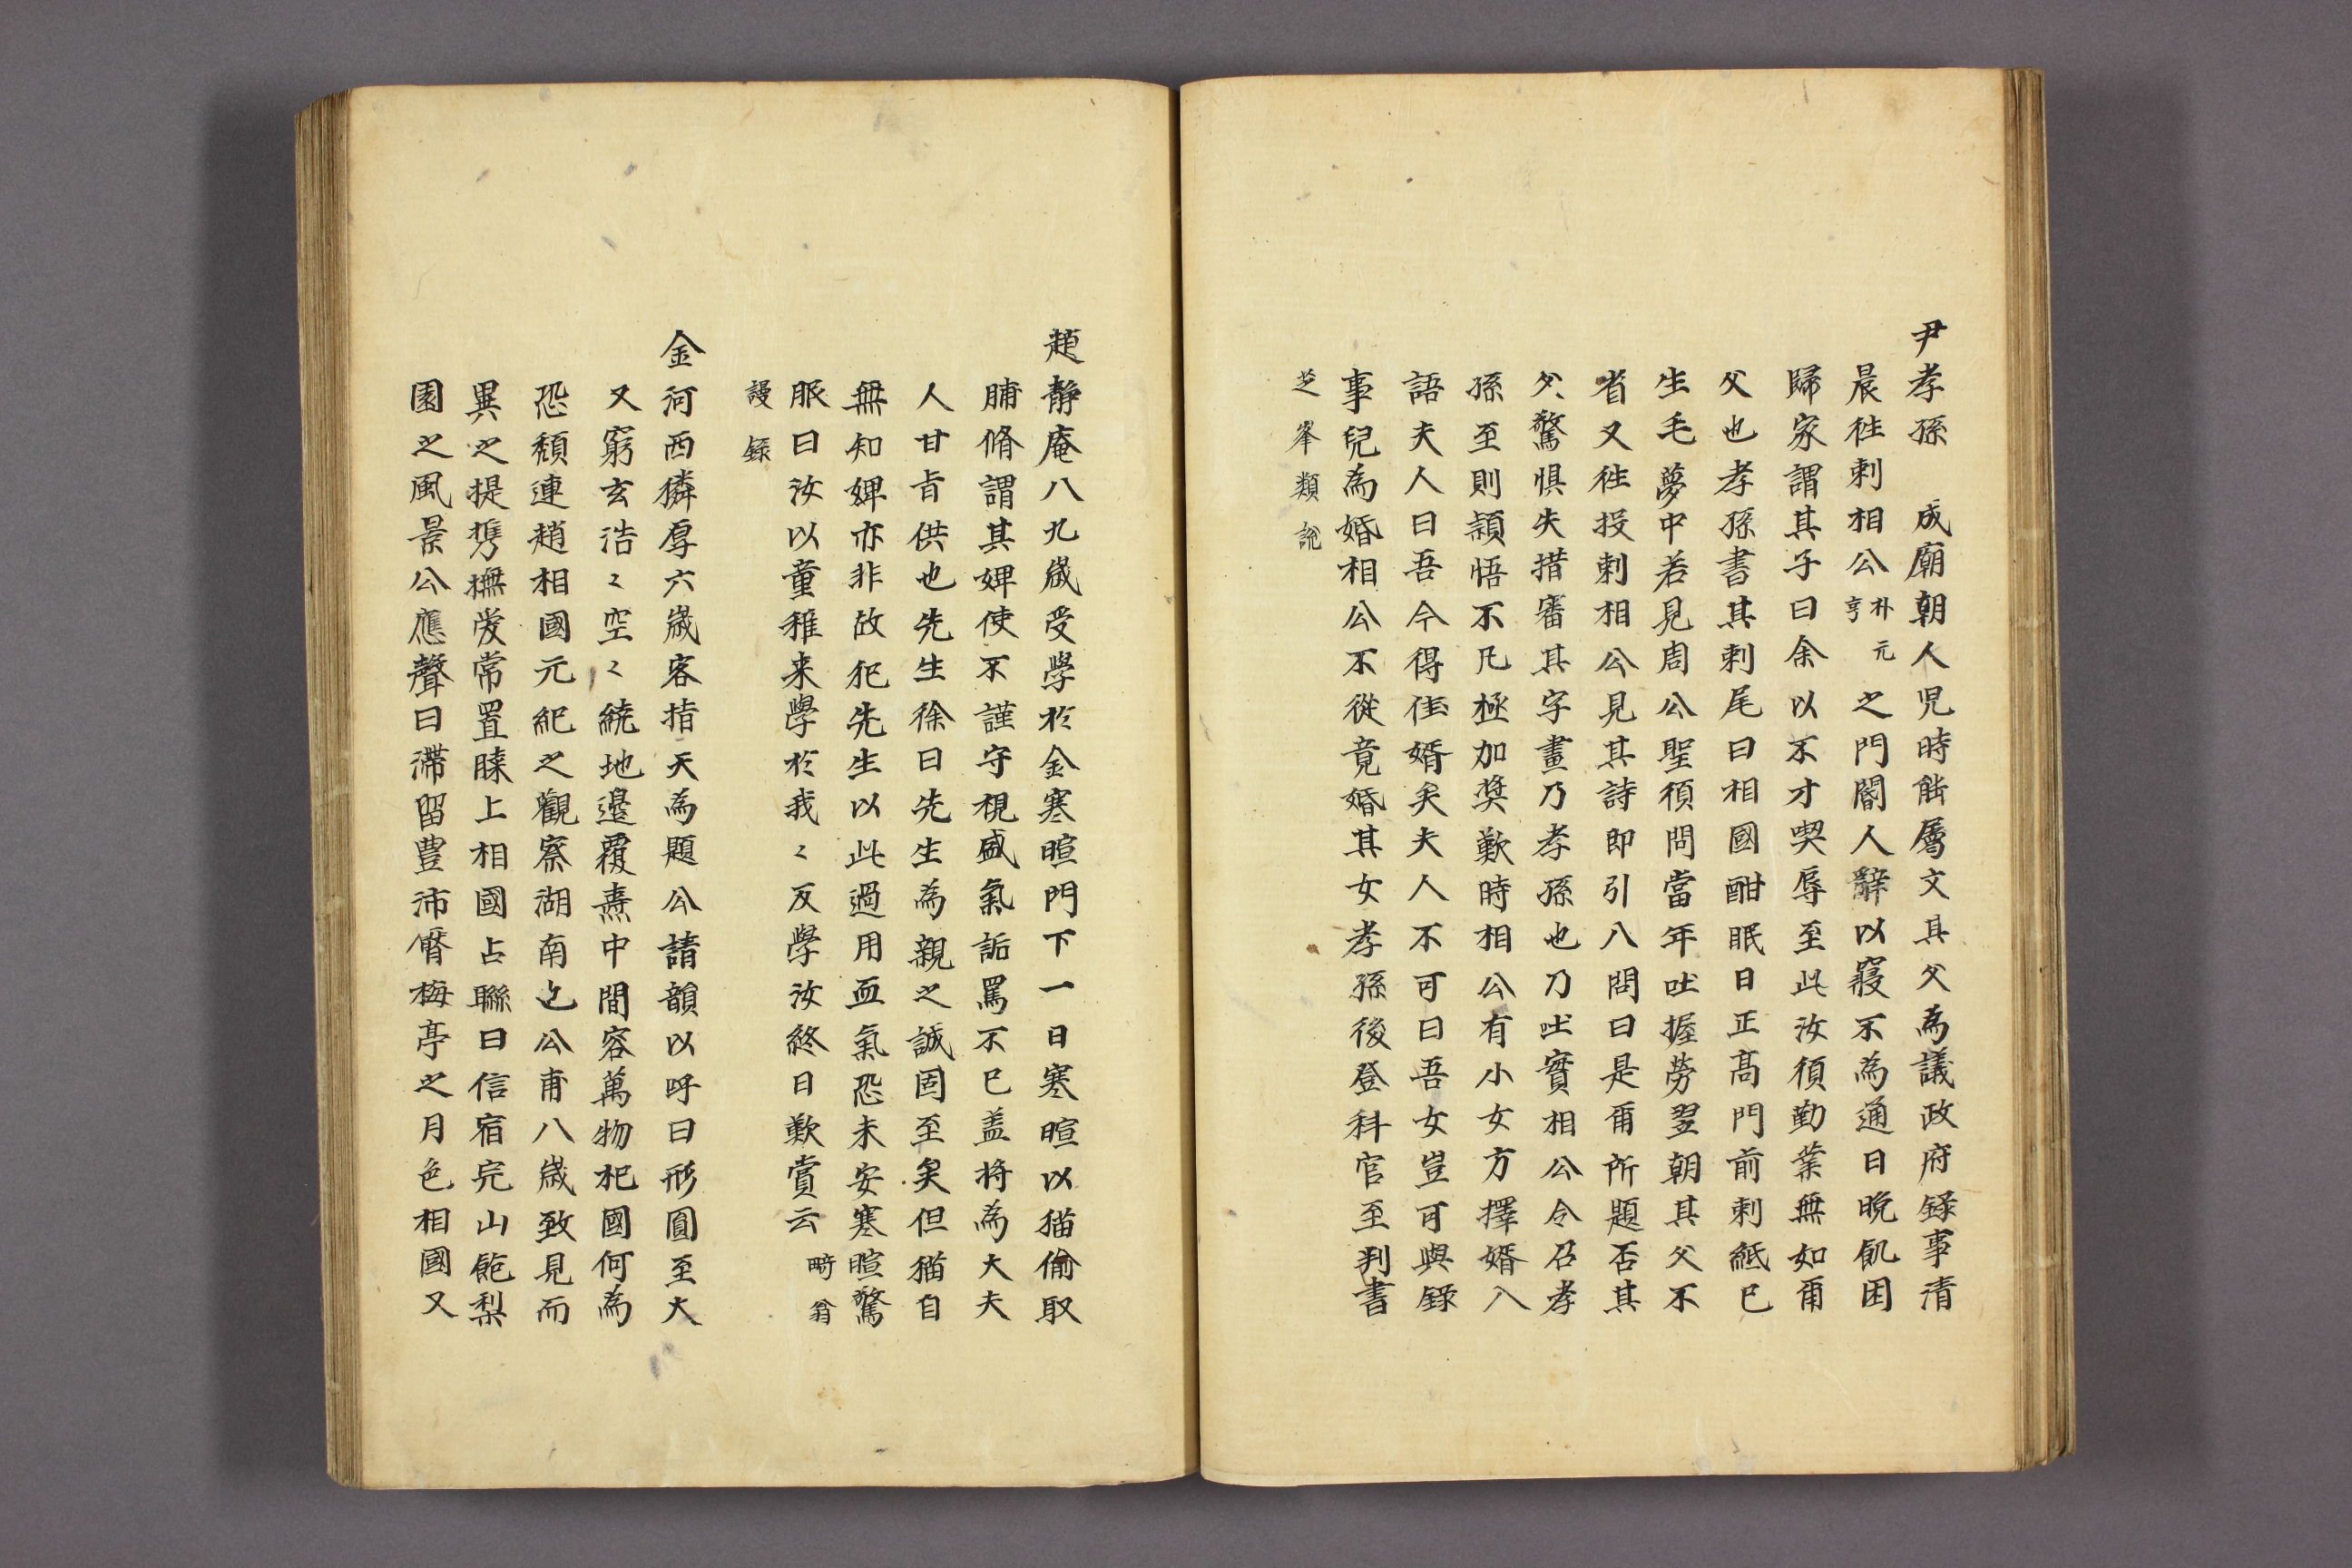 尹孝孫 成廟朝人児時能屬文其父為議政府録事清
晨徃刺相公朴元亨之門閽人辭以寢不為通日晩飢困
歸家謂其子曰余以不才喫辱至此汝須勤業無如爾
父也孝孫書其刺尾曰相國酣眠日正高門前刺紙已
生毛夢中若見周公聖須問當年吐握勞翌朝其父不
省又徃投刺相公見其詩即引入問曰是爾所題否其
父驚惧失措審其字畫乃孝孫也乃吐實相公令召孝
孫至則頴悟不凡極加奬歎時相公有小女方擇婿入
語夫人曰吾今得佳婿矣夫人不可曰吾女豈可與錄
事兒為婚相公不從竟婚其女孝孫後登科官至判書
芝峯類說
趙静庵八九歲受學於金寒暄門下一日寒暄以猫偷取
脯脩謂其婢使不謹守視盛氣詬罵不已盖將為大夫
人甘旨供也先生徐曰先生為親之誠固至矣但猫自
無知婢亦非故犯先生以此過用血氣恐未安寒暄驚
服曰汝以童稚来學於我〻反學汝終日歎賞云 畸翁
謾録
金河西獜厚六歲客指天為題公請韻以呼曰形圓至大
又窮玄浩〻空〻繞地邊覆燾中間容萬物杞國何為
恐頽連趙相國元紀之觀察湖南也公甫八歲致見而
異之提携撫愛常置膝上相國占聯曰信宿完山飽梨
園之風景公應聲曰滯留豊沛厭梅亭之月色相國又